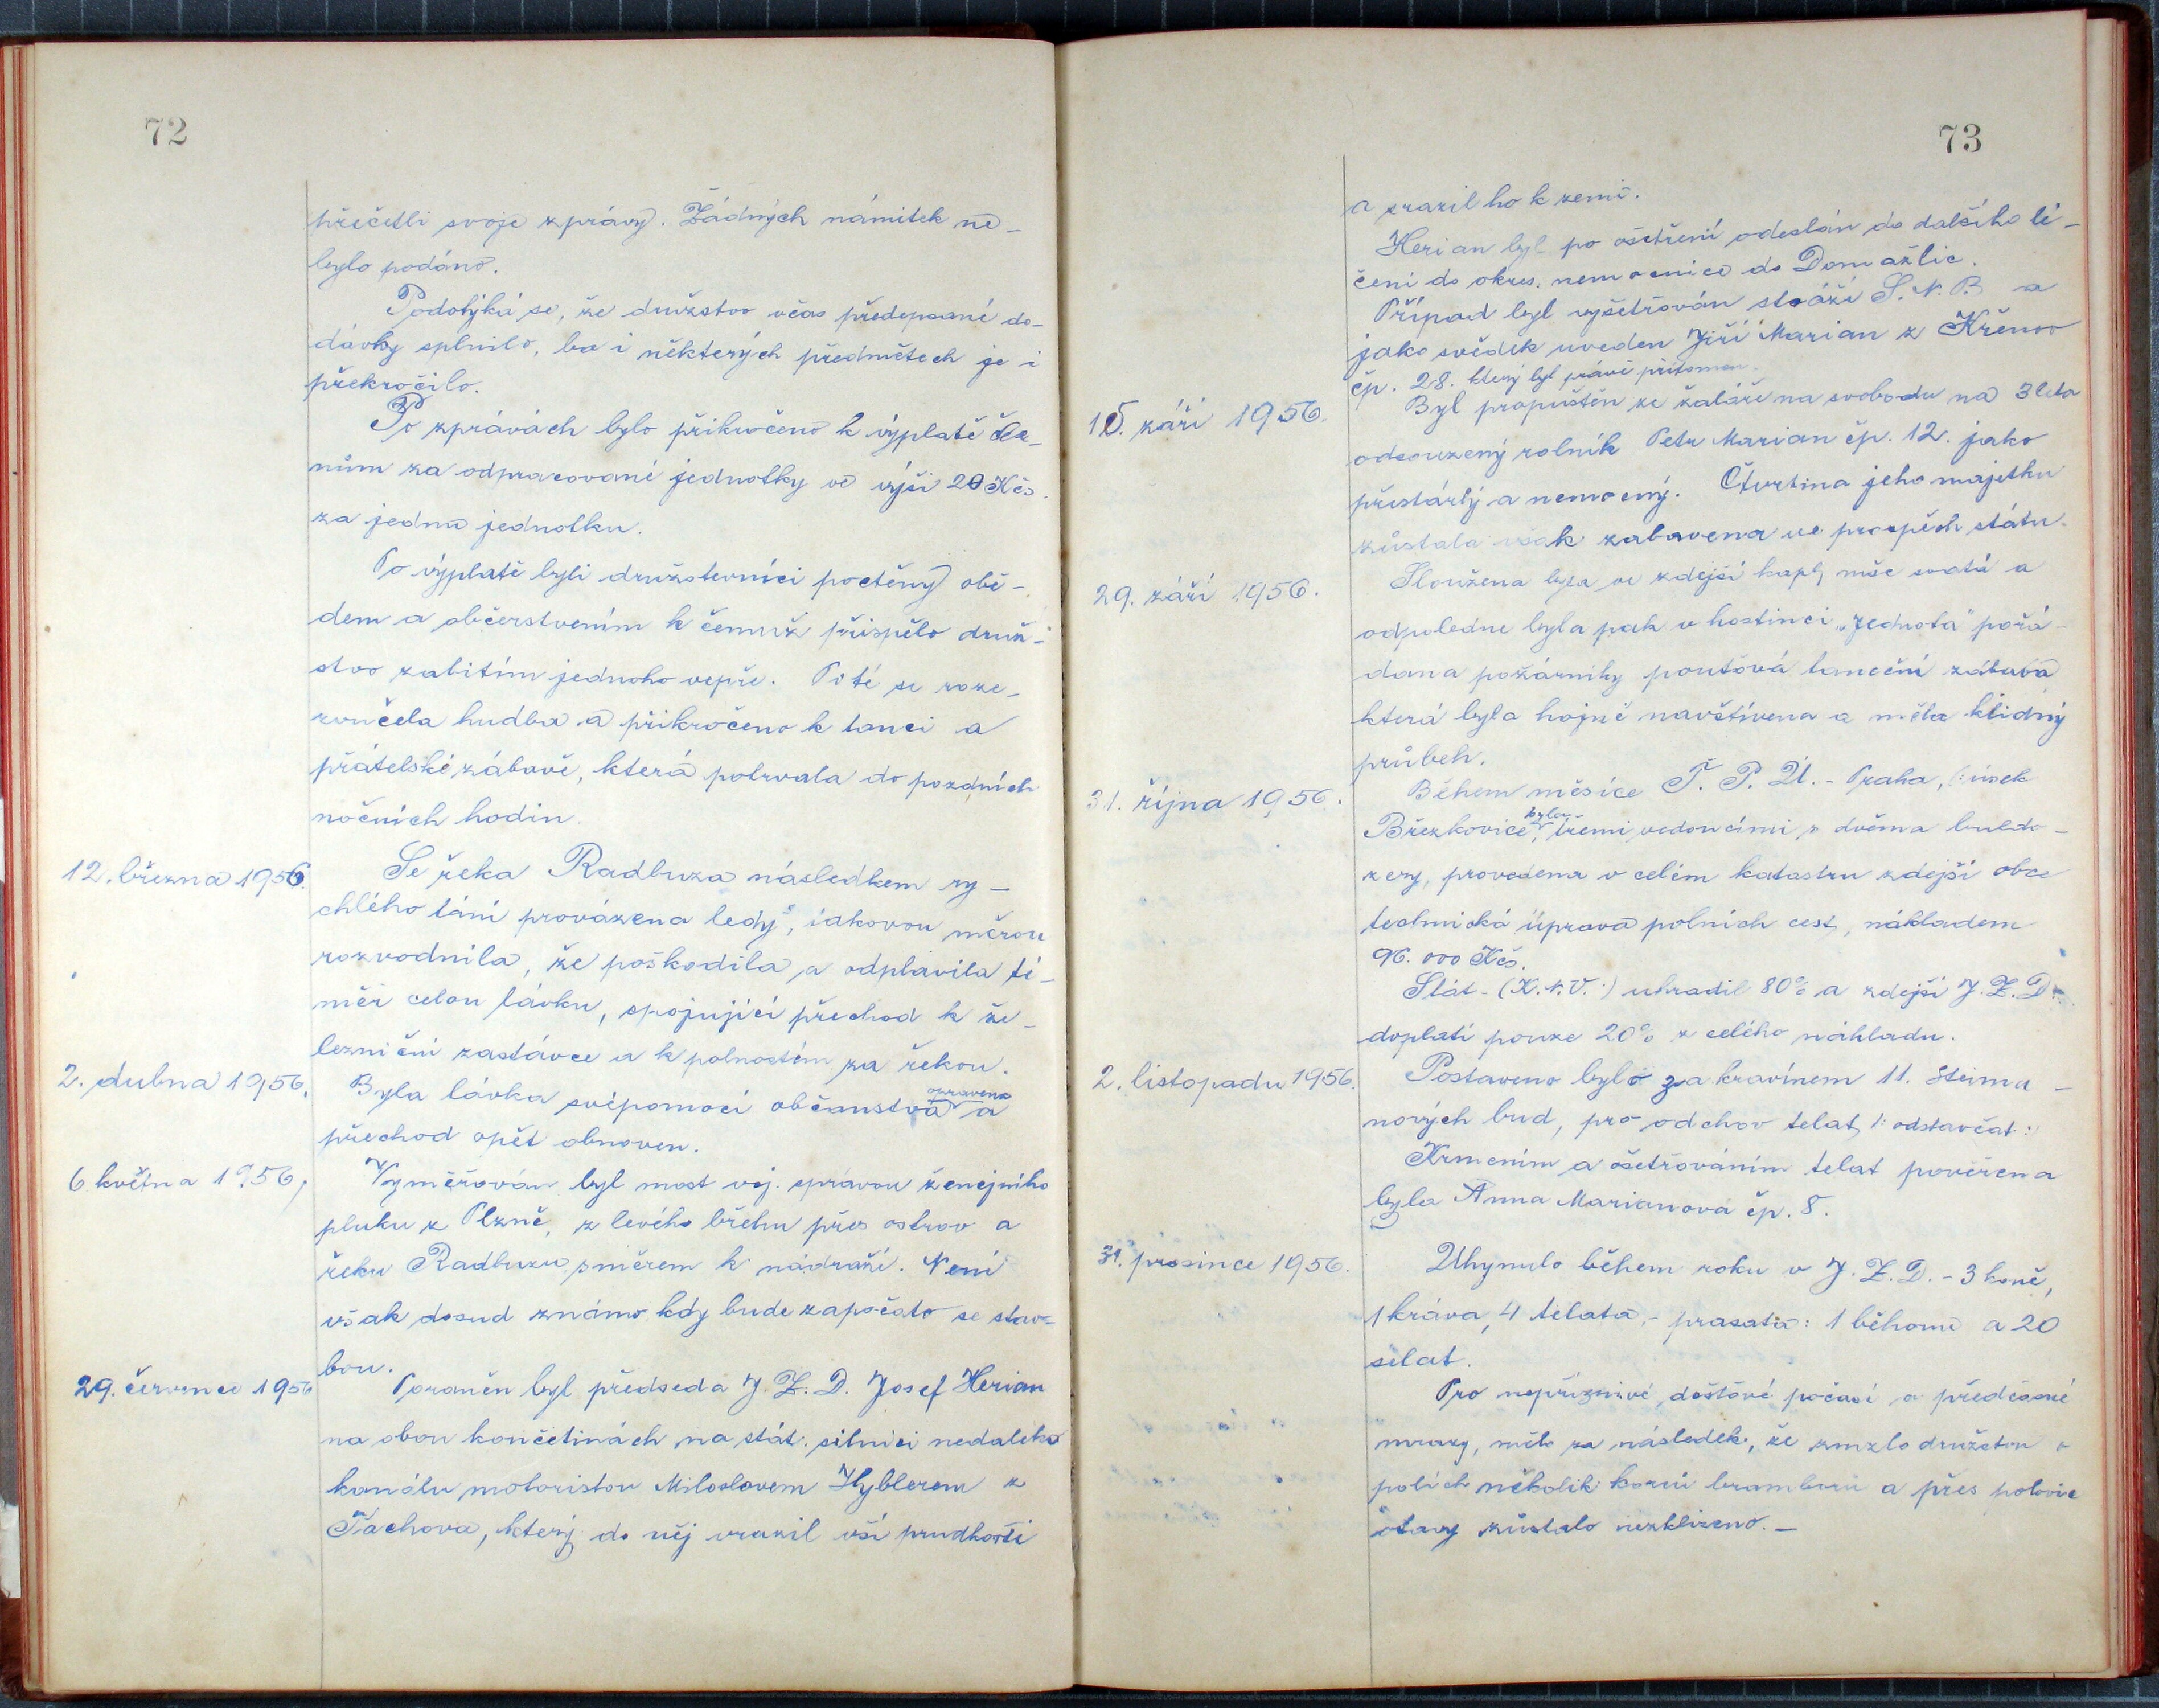 72
přečetli svoje zprávy. Žádných námitek ne-
bylo podáno.
Podotýká se, že družstvo včas předepsané do-
dávky splnilo, ba i některých předmětech je i
překročilo.
Po zprávách bylo přikročeno k výplatě čle-
nům za odpracované jednotky ve výši 20 Kčs.
za jednu jednotku.
Po výplatě byli družstevníci poctěny obě-
dem a občerstvením k čemuž přispělo druž-
stvo zabitím jednoho vepře. Poté se roze-
zvučela hudba a přikročeno k tanci a
přátelské zábavě, která potrvala do pozdních
nočních hodin.
12. března 1956. Se řeka Radbuza následkem ry-
chlého tání provázena ledy, takovou měrou
rozvodnila, že poškodila a odplavila té-
měř celou lávku, spojující přechod k že-
lezniční zastávce a k polnostem za řekou.
2. dubna 1956. Byla lávka svépomocí občanstva opravena a
přechod opět obnoven.
6 května 1956, Vyměřován byl most voj. správou ženejního
pluku z Plzně, z levého břehu přes ostrov a
řeku Radbuzu směrem k nádraží. Není
však dosud známo kdy bude započato se stav-
bou.
29. července 1956 Poraněn byl předseda J. Z. D. Josef Herian
na obou končetinách na stát. silnici nedaleko
kanálu motoristou Miloslovem Hyblerem z
Tachova, který do něj vrazil vší prudkostí
73
a srazil ho k zemi.
Herian byl po ošetření odeslán do dalšího lé-
čení do okres. nemocnice do Domažlic.
Případ byl vyšetřován stráží S. N. B. a
jako svědek uveden Jiří Marian z Křenov
čp. 28. který byl právě přítomen.
15. září 1956. Byl propuštěn ze žaláře na svobodu na 3 leta
odsouzený rolník Petr Marian čp. 12. jako
přestárlý a nemocný. Čtvrtina jeho majetku
zůstala však zabavena ve prospěch státu.
29. září 1956. Sloužena byla ve zdejší kapli mše svatá a
odpoledne byla pak v hostinci „Jednota" pořá-
dana požárníky pouťová taneční zábava
která byla hojně navštívena a měla klidný
průbeh.
31. října 1956. Během měsíce T. P. Ú. - Praha, (: úsek
Březkovice, byla třemi vedoucími s dvěma buldo-
zery, provedena v celém katastru zdejší obce
technická úprava polních cest, nákladem
96.000 Kčs.
Stát - (K.N.V.:) uhradil 80% a zdejší J. Z. D.
doplatí pouze 20% z celého nákladu.
2. listopadu 1956. Postaveno bylo za kravínem 11. Steimu-
nových bud, pro odchov telat, /: odstavčat:
Krmením a ošetřováním telat pověřena
byla Anna Marianova čp. 8.
31. prosince 1956. Uhynulo během roku v J. Z. D. - 3 koně,
1 kráva, 4 telata, - prasata: 1 běhoun a 20
selat.
Pro nepříznivé, deštivé počasí a předčasné
mrazy, mělo za následek, že zmrzlo družstvu v
polích několik korců bramborů a přes polovic
otavy zůstalo nezklizeno. -